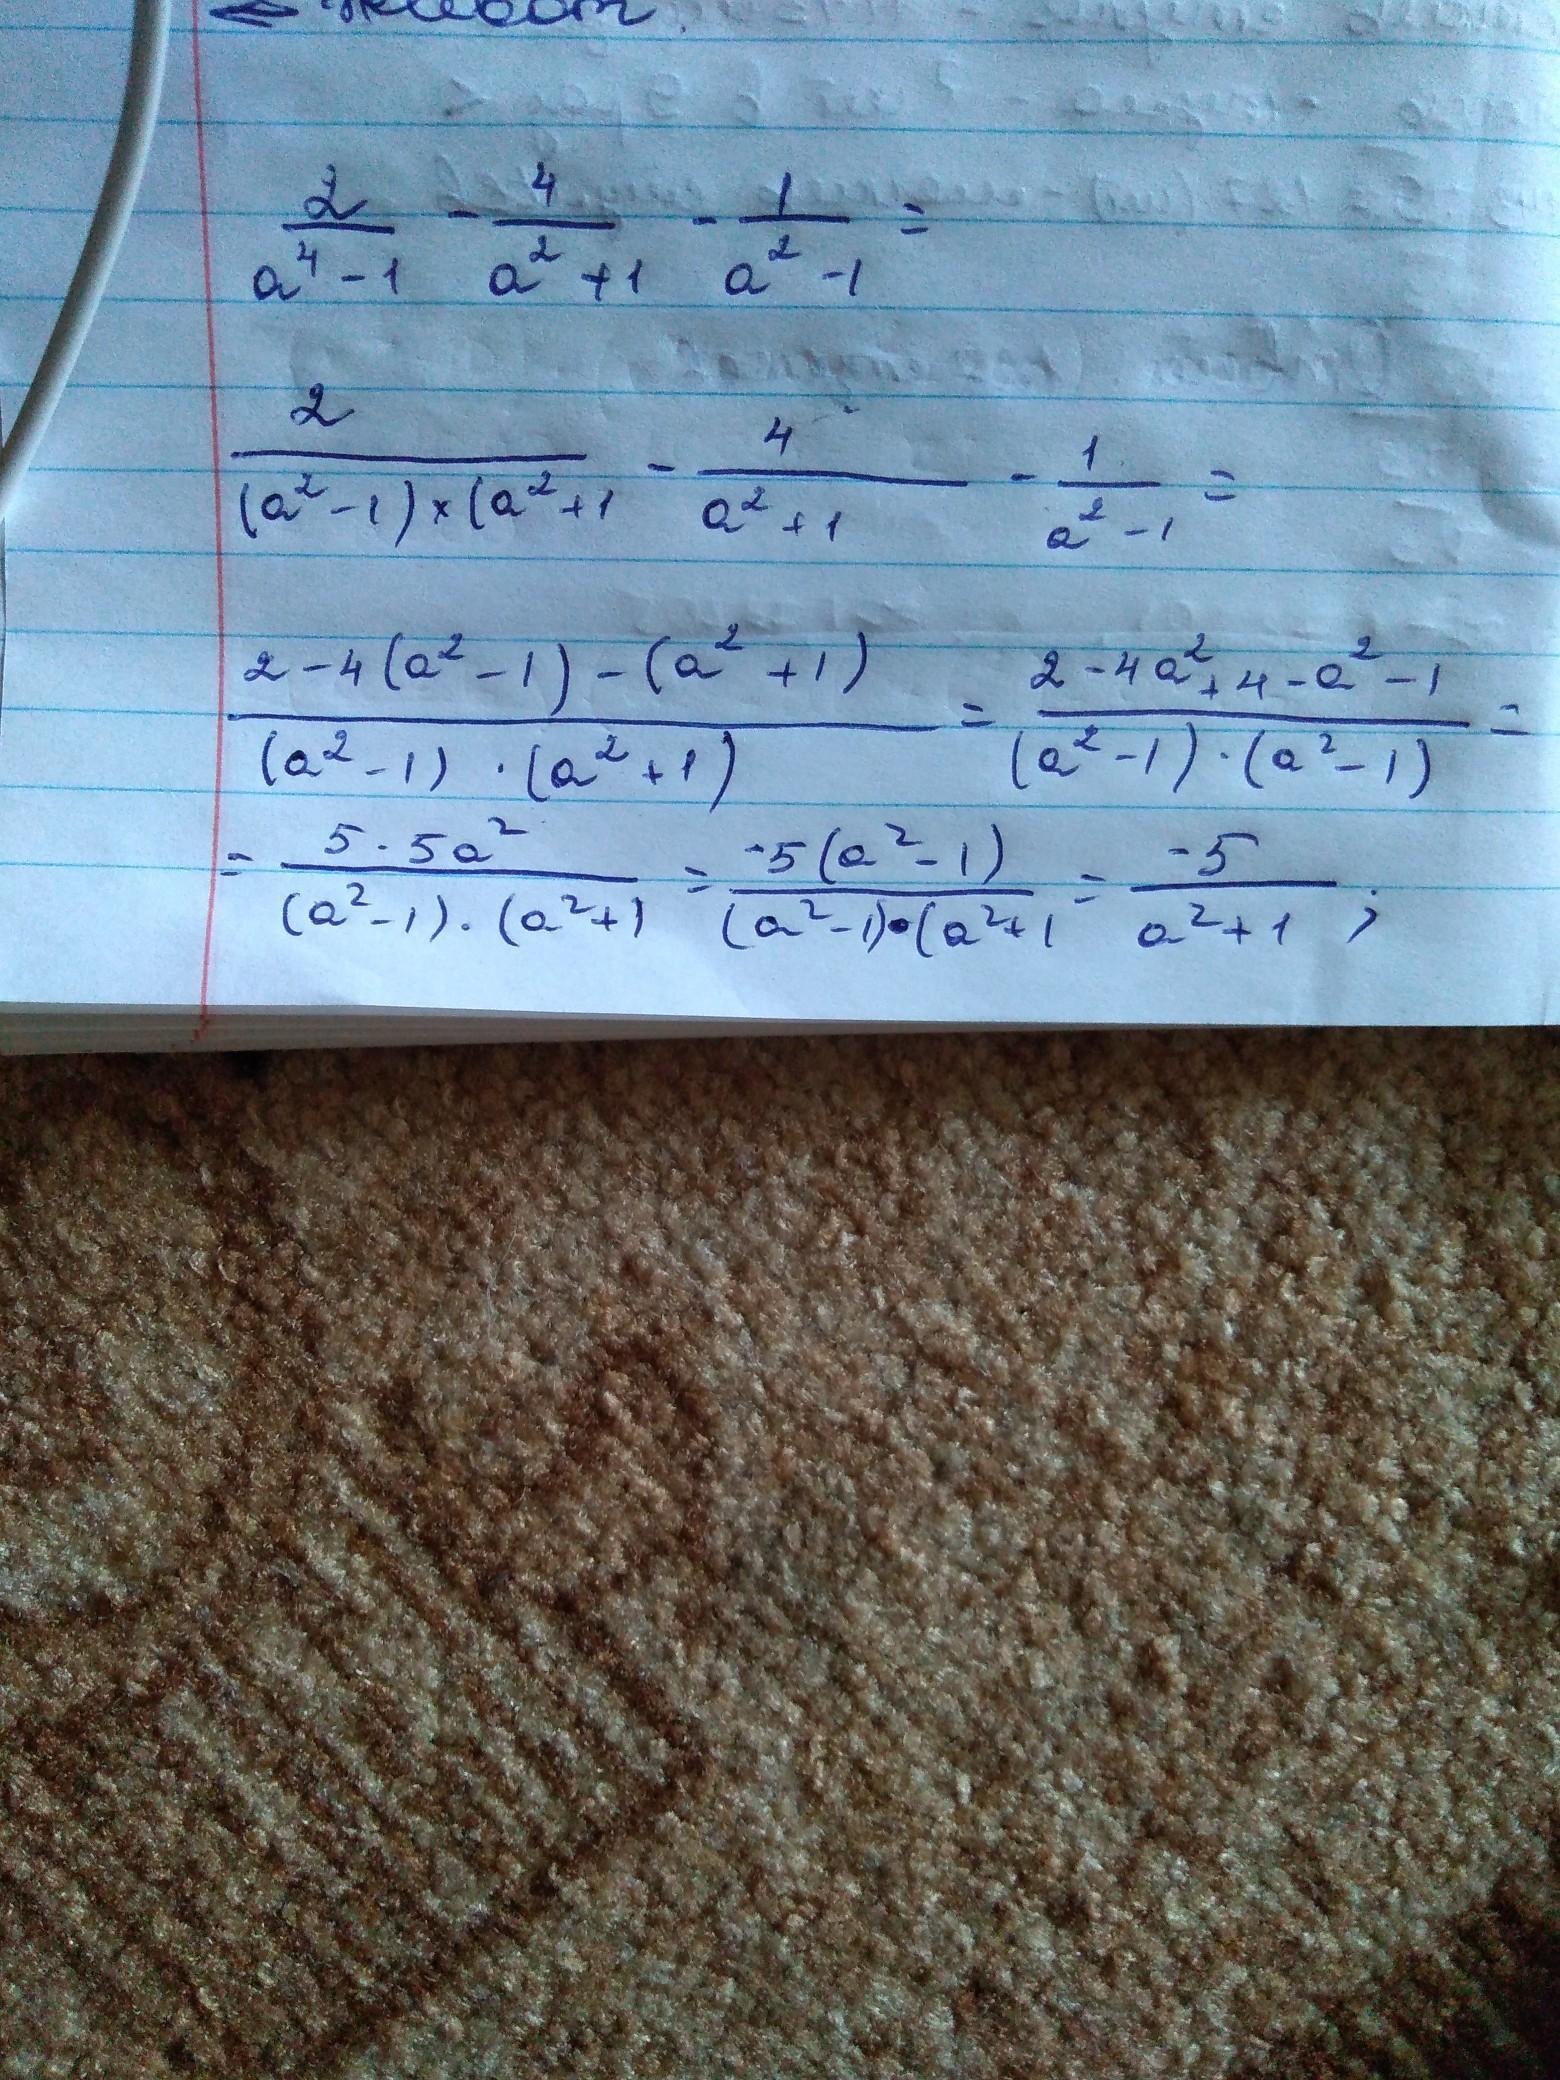 ← живот.
2/(a⁴ - 1) - 4/(a² + 1) - 1/(a² - 1) =
2/((a² - 1) × (a² + 1) - 4/(a² + 1) - 1/(a² - 1) =
(2 - 4(a² - 1) - (a² + 1))/((a² - 1) · (a² + 1)) = (2 - 4a² + 4 - a² - 1)/((a² - 1) · (a² - 1)) =
= (5 · 5a²)/((a² - 1) · (a² + 1) = (-5(a² - 1))/((a² - 1) · (a² + 1) = (-5)/(a² + 1) ;